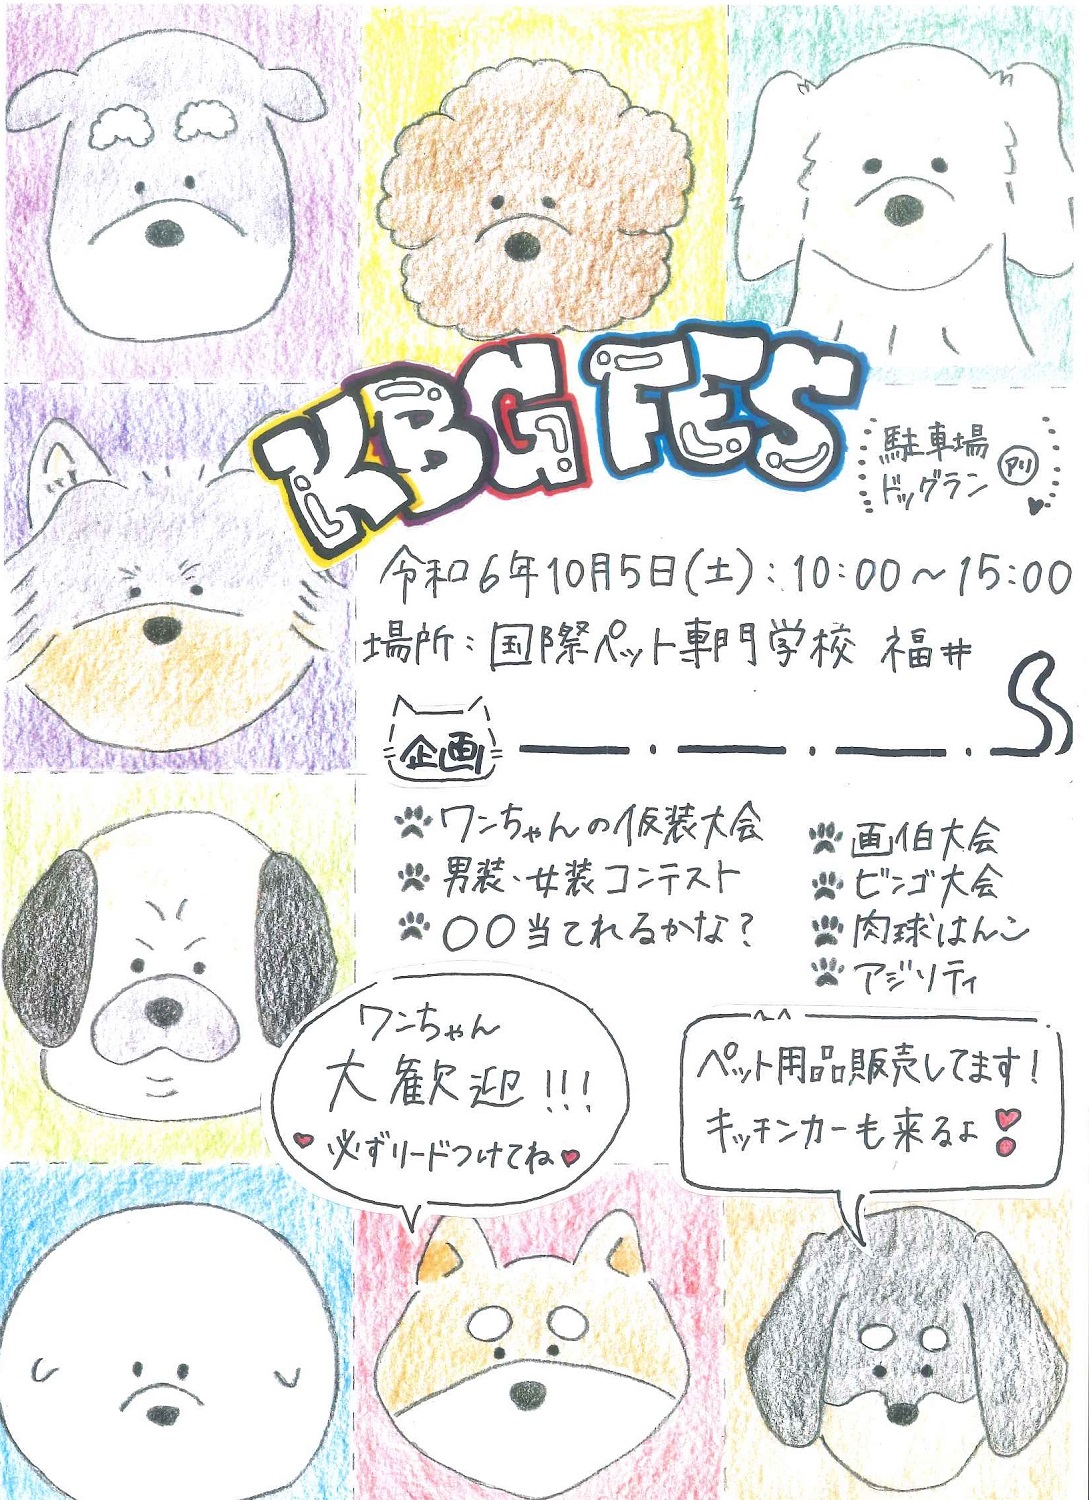 KBG FES
駐車場
ドッグラン
アリ
令和6年10月5日(土):10:00～15:00
場所:国際ペット専門学校 福井
企画
ワンちゃんの仮装大会
男装・女装コンテスト
〇〇当てれるかな?
画伯大会
ビンゴ大会
肉球はんこ
アジリティ
ワンちゃん
大歓迎!!!
必ずリードつけてね
ペット用品販売してます!
キッチンカーも来るよ